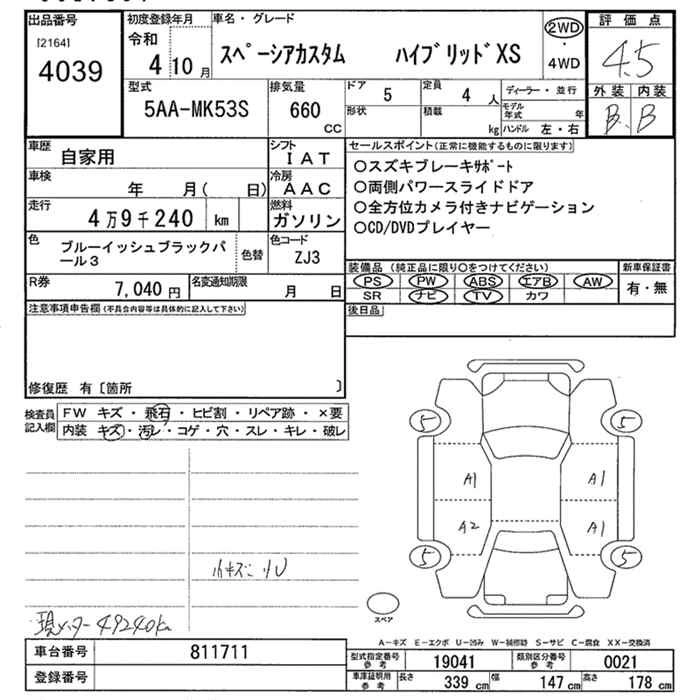 出品番号
[2164]
4039
初度登録年月
令和
4 10 月
車名・グレード
スペーシアカスタム ハイブリッドXS
2WD
・
4WD
評価点
4.5
外装 内装
B B
型式
5AA-MK53S
排気量
660
CC
ドア 5
形状
定員 4 人
積載 kg
ディーラー・並行
モデル年式 年
ハンドル 左・右
車歴 自家用
シフト
IAT
車検 年 月( 日)
冷房
AAC
走行 4万9千240 km
燃料
ガソリン
色 ブルーイッシュブラックパール3
色替
色コード
ZJ3
R券 7,040 円
名変通知期限 月 日
セールスポイント(正常に機能するものに限ります)
○スズキブレーキサポート
○両側パワースライドドア
○全方位カメラ付きナビゲーション
○CD/DVDプレイヤー
装備品 (純正品に限り○をつけてください)
PS PW ABS エアB AW
SR ナビ TV カワ
新車保証書
有・無
後日品
注意事項申告欄(不具合内容等は具体的に記入して下さい)
修復歴 有〔箇所 〕
検査員記入欄
FW キズ・飛石・ヒビ割・リペア跡・×要
内装 キズ・汚レ・コゲ・穴・スレ・キレ・破レ
5 5
A1 A1
A2 A1
5 5
小キズ
現メーター 49240km
スペア
A-キズ E-エクボ U-凹み W-補修跡 S-サビ C-腐食 XX-交換済
車台番号 811711
登録番号
型式指定番号
参考
19041
類別区分番号
参考
0021
車庫証明用
参考
長さ 339 cm
幅 147 cm
高さ 178 cm